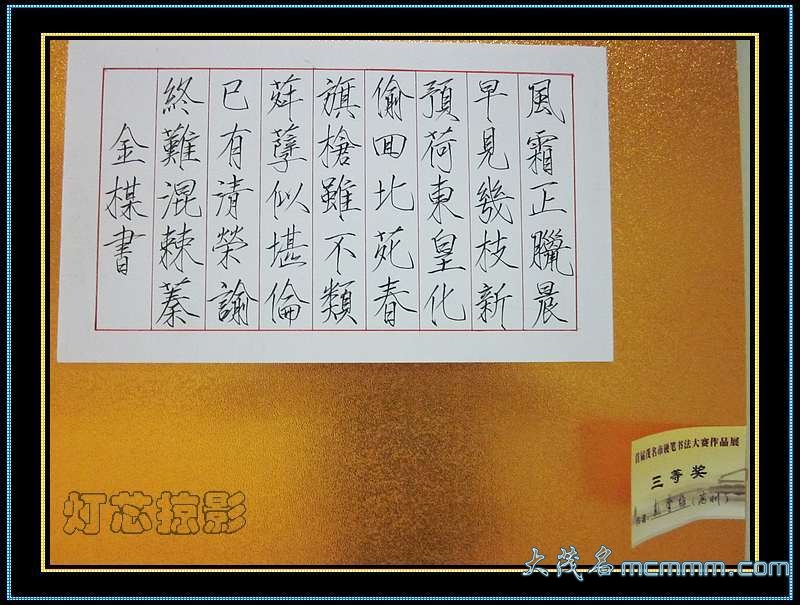 風霜正臘晨
早見幾枝新
預荷東皇化
偷回北苑春
旗槍雖不類
荈孽似堪倫
已有清榮諭
終難混棘蓁
金楳書
首届茂名市硬笔书法大赛作品展
三等奖
灯芯掠影
大茂名mcmmm.com